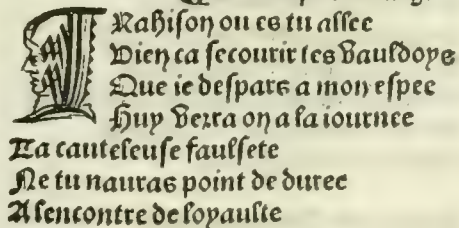 TRahison ou es tu allee
Vien ca secourir tes vauldoys
Que ie despars a mon espee
Huy verra on a la iournee
Ta cauteleuse faulsete
Ne tu nauras point de duree
A lencontre de loyaulte